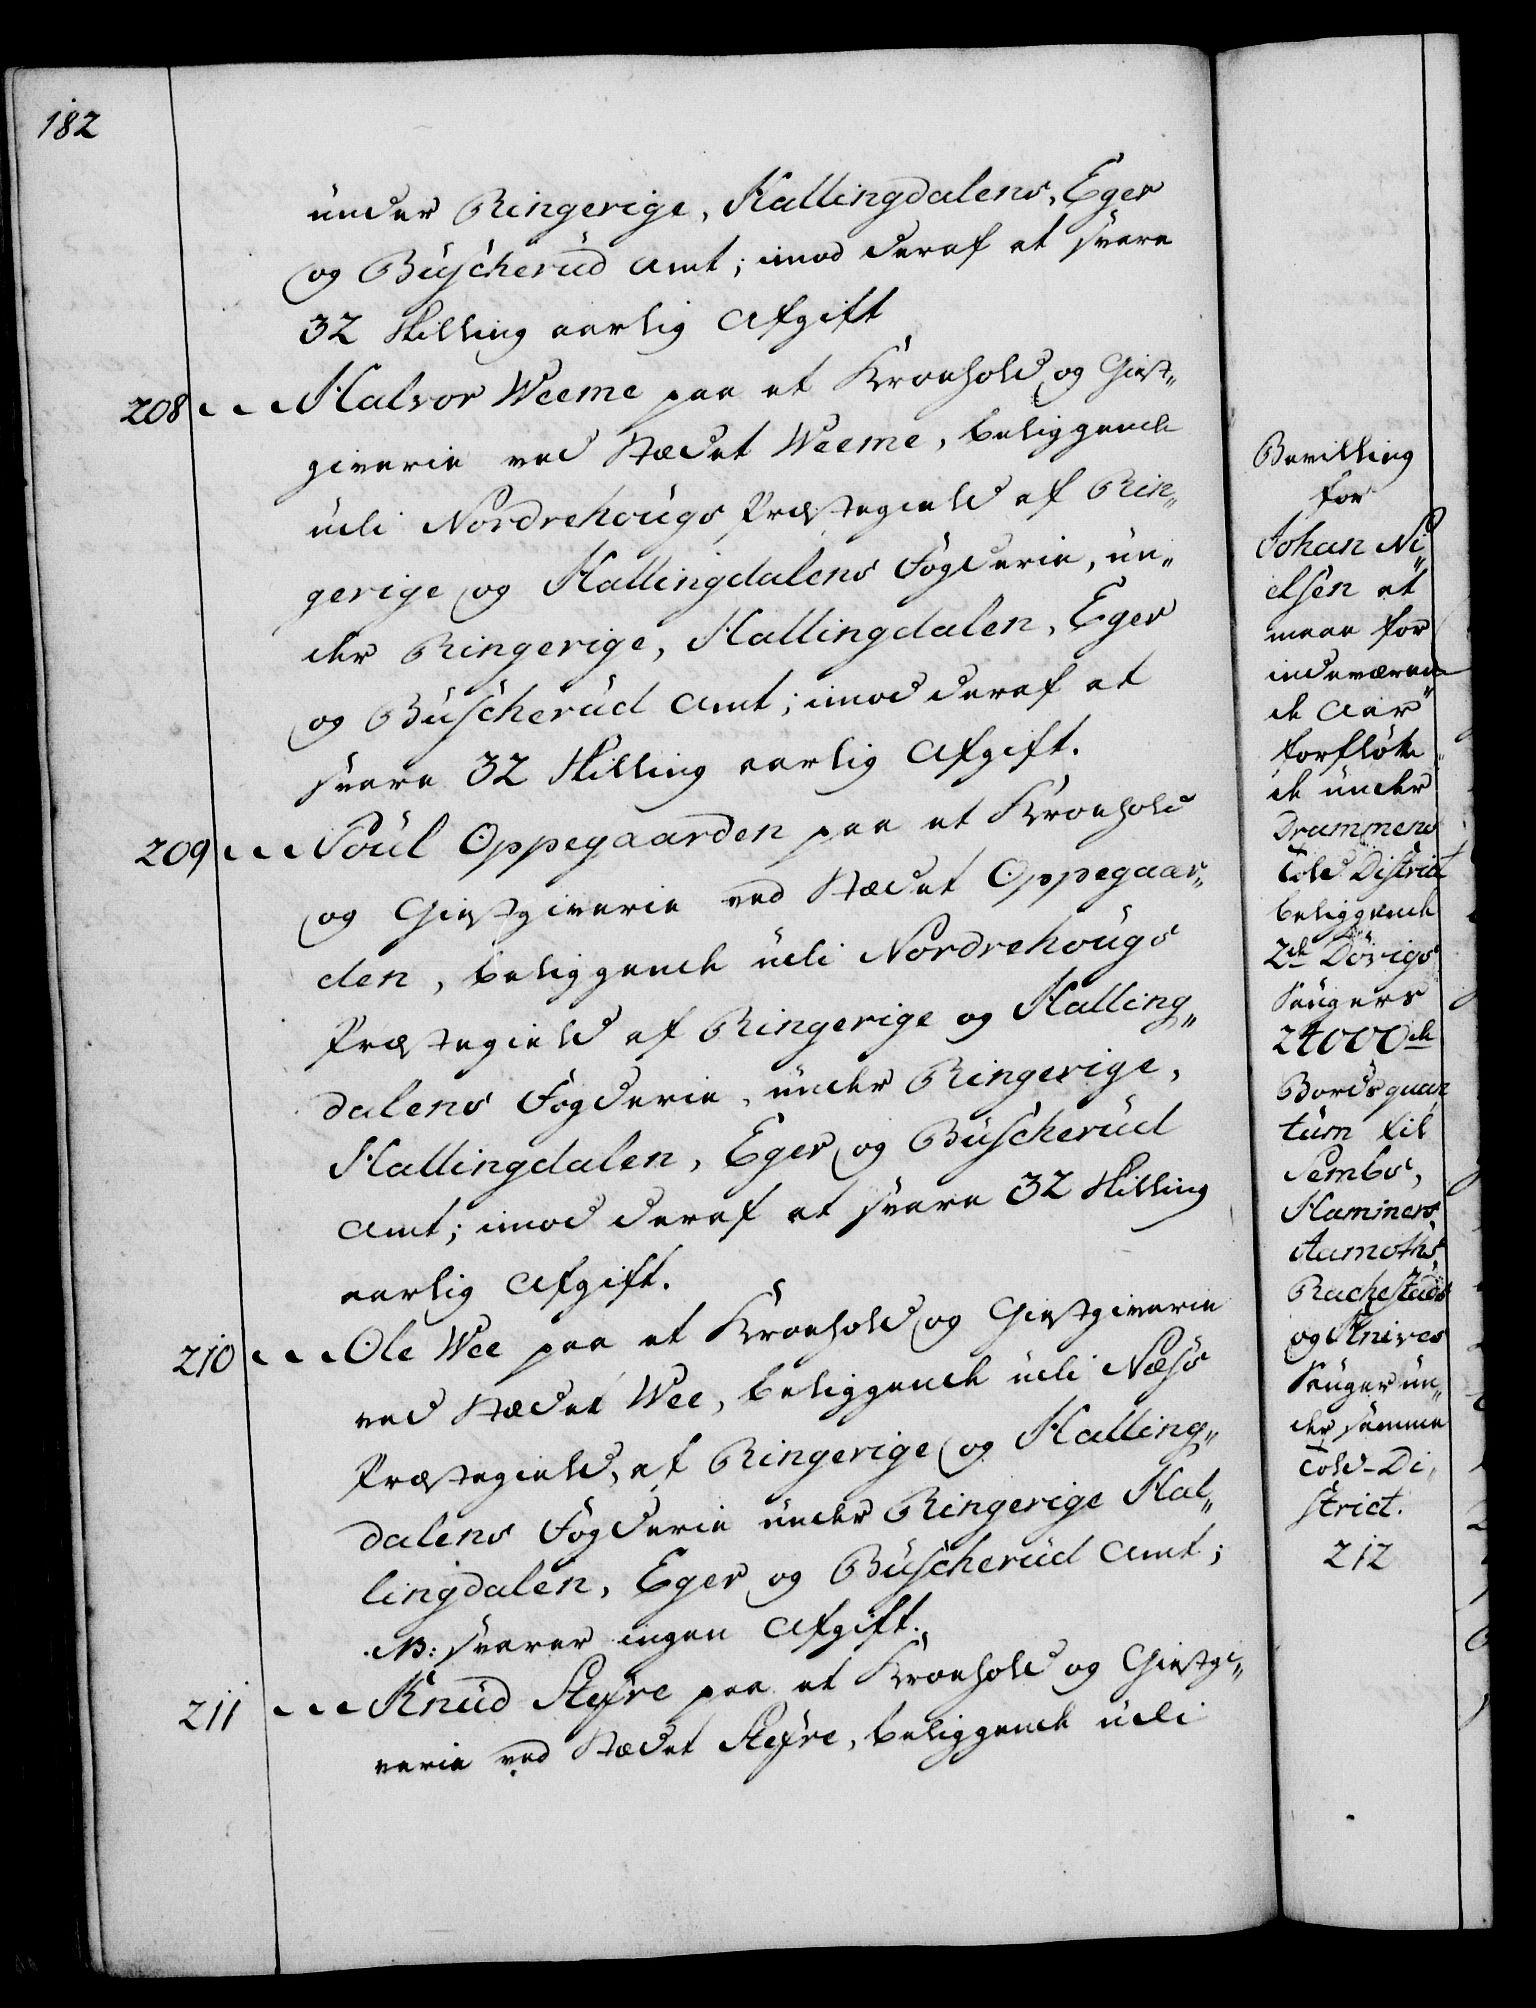 182
under Ringerige, Hallingdalens, Eger
og Buscherud Amt; imod deraf at svare
32 Skilling aarlig Afgift
208 Halvor Weeme paa et Kroehold og Giest„
giverie ved Stædet Weeme, beliggende
udi Nordrehougs Præstegield af Rin„
gerige og Hallingdalens Fogderie, un„
der Ringerige, Hallingdalen, Eger
og Buscherud Amt; imod deraf at
svare 32 Skilling aarlig Afgift.
209 Poul Oppegaarden paa et Kroehold
og Giestgiverie ved Stædet Oppegaar„
den, beliggende udi Nordrehougs
Præstegield af Ringerige og Halling„
dalens Fogderie, under Ringerige,
Hallingdalen, Eger og Buscherud
Amt; imod deraf at svare 32 Skilling
aarlig Afgift.
210 Ole Wee paa et Kroehold og Giestgiverie
ved Stædet Wee, beliggende udi Næss
Præstegield, af Ringerige og Halling„
dalens Fogderie under Ringerige Hal„
lingdalen, Eger og Buscherud Amt;
NB: svarer ingen Afgift.
211 Knud paa et Kroehold og Giestgi„
verie ved Stædet beliggende udi
Bevilling
for
Johan Ni„
elsen at
maae for
indeværen„
de Aar
forfløtte
de under
Drammens
Told District
beliggende
2de Dørigs
Sauger
24000de
Bords quan
tum til
Sembs,
Hamners
Aamoths,
Rachestads
og Knives
Sauger un„
der samme
Told-Di„
strict.
212